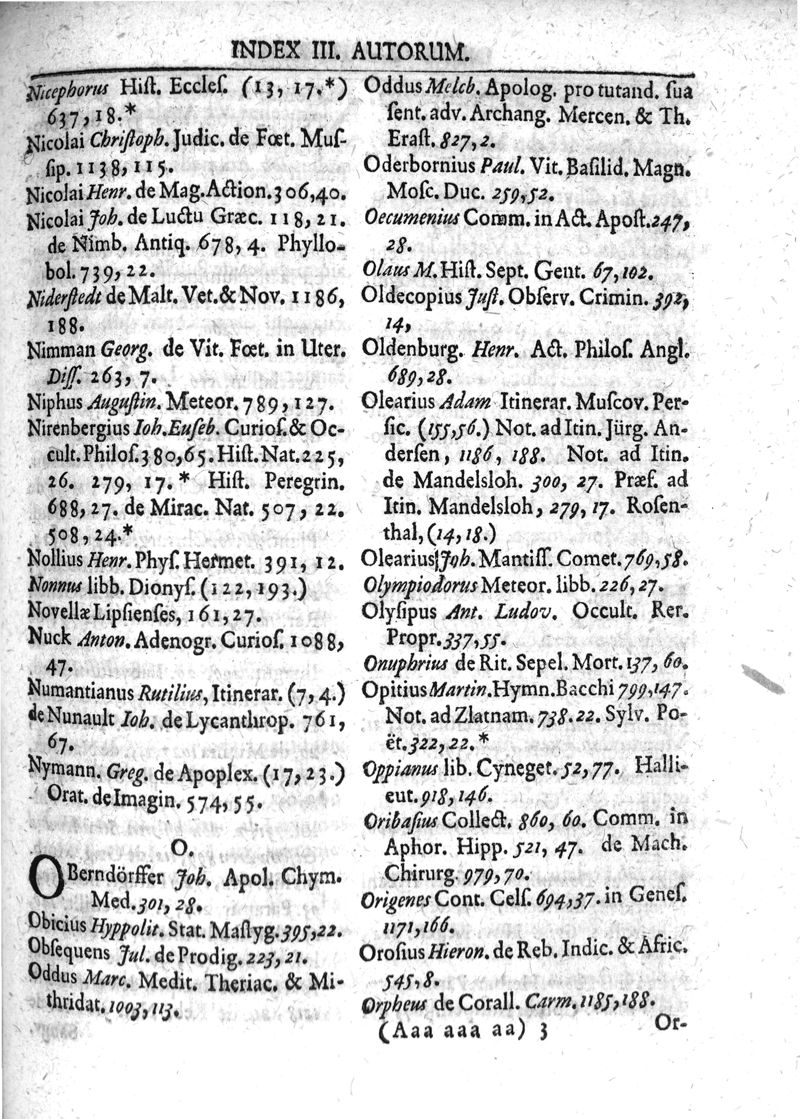 INDEX III. AUTORUM.
Nicephorus Hiſt. Eccleſ. (13, 17.*)
637,18.*
Nicolai Chriſtoph. Judic. de Fœt. Muſ-
ſip. 1138, 115.
Nicolai Henr. de Mag. Action. 306,40.
Nicolai Joh. de Luctu Græc. 118, 21.
de Nimb. Antiq. 678, 4. Phyllo-
bol. 739, 22.
Niderſtedt de Malt. Vet. & Nov. 1186,
188.
Nimman Georg. de Vit. Fœt. in Uter.
Diſſ. 263, 7.
Niphus Auguſtin. Meteor. 789, 127.
Nirenbergius Ioh. Euſeb. Curioſ. & Oc-
cult. Philoſ. 380, 65. Hiſt. Nat. 225,
26. 279, 17.* Hiſt. Peregrin.
688, 27. de Mirac. Nat. 507, 22.
508, 24.*
Nollius Henr. Phyſ. Hermet. 391, 12.
Nonnus libb. Dionyſ. (122, 193.)
Novellæ Lipſienſes, 161, 27.
Nuck Anton. Adenogr. Curioſ. 1088,
47.
Numantianus Rutilius, Itinerar. (7, 4.)
de Nunault Ioh. de Lycanthrop. 761,
67.
Nymann. Greg. de Apoplex. (17, 23.)
Orat. de Imagin. 574, 55.
O.
OBerndörffer Joh. Apol. Chym.
Med. 301, 28.
Obicius Hyppolit. Stat. Maſtyg. 395, 22.
Obſequens Jul. de Prodig. 223, 21.
Oddus Marc. Medit. Theriac. & Mi-
thridat. 1003, 113.
Oddus Melch. Apolog. pro tutand. ſua
ſent. adv. Archang. Mercen. & Th.
Eraſt. 827, 2.
Oderbornius Paul. Vit. Baſilid. Magn.
Moſc. Duc. 259, 52.
Oecumenius Comm. in Act. Apoſt. 247,
28.
Olaus M. Hiſt. Sept. Gent. 67, 102.
Oldecopius Juſt. Obſerv. Crimin. 392,
14,
Oldenburg. Henr. Act. Philoſ. Angl.
689, 28.
Olearius Adam Itinerar. Muſcov. Per-
ſic. (155, 56.) Not. ad Itin. Jürg. An-
derſen, 1186, 188. Not. ad Itin.
de Mandelsloh. 300, 27. Præf. ad
Itin. Mandelsloh, 279, 17. Roſen-
thal, (14, 18.)
Olearius Joh. Mantiſſ. Comet. 769, 58.
Olympiodorus Meteor. libb. 226, 27.
Olyſipus Ant. Ludov. Occult. Rer.
Propr. 337, 55.
Onuphrius de Rit. Sepel. Mort. 137, 60.
Opitius Martin. Hymn. Bacchi 799, 147.
Not. ad Zlatnam. 738. 22. Sylv. Po-
ët. 322, 22.*
Oppianus lib. Cyneget. 52, 77. Halli-
eut. 918, 146.
Oribaſius Collect. 860, 60. Comm. in
Aphor. Hipp. 521, 47. de Mach.
Chirurg. 979, 70.
Origenes Cont. Celſ. 694, 37. in Geneſ.
1171, 166.
Oroſius Hieron. de Reb. Indic. & Afric.
545, 8.
Orpheus de Corall. Carm. 1185, 188.
(Aaa aaa aa) 3
Or-